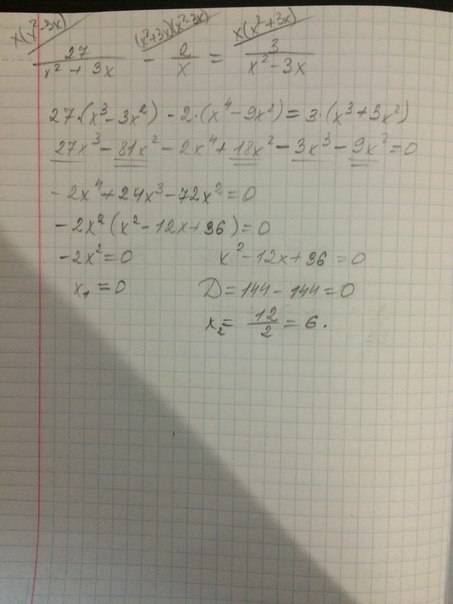 x(x²-3x) (x²+3x)(x²-3x) x(x²+3x)
27/(x²+3x) - 2/x = 3/(x²-3x)
27·(x³-3x²)-2·(x⁴-9x²)=3·(x³+3x²)
27x³-81x²-2x⁴+18x²-3x³-9x²=0
-2x⁴+24x³-72x²=0
-2x²(x²-12x+36)=0
-2x²=0 x²-12x+36=0
x₁=0 D=144-144=0
x₂=12/2=6.